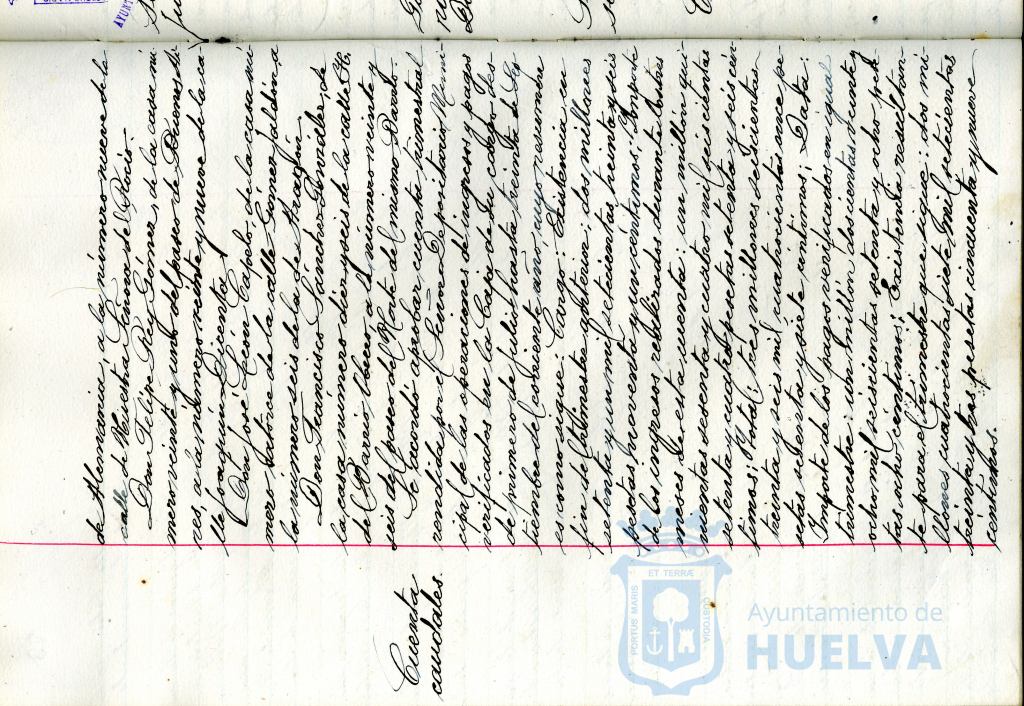 de Alemania, a la número nueve de la
calle de Nuestra Señora del Rocío.
Don Felipe Pérez Gómez, de la casa nú
mero veinte y uno del paseo de Buenos Ai
res, a la número veinte y nueve de la ca
lle Joaquín
Don José León Cepelo, de la casa nú
mero catorce de la calle Gómez Jaldón, a
la número seis de la de Aragón.
Don Francisco Sánchez González, de
la casa número diez y seis de la calle A.
de Baroi, baoc, a la número veinte y
seis del paseo del Mata del mismo Barrio.
Cuenta
caudales.
Se acordó aprobar cuenta trimestral
rendida por el Señor Depositario Muni
cipal de las operaciones de ingresos y pagos
verificados en la Caja de su cargo des-
de primero de julio hasta treinta de Sep
tiembre del corriente año, cuyo resumen
es como sigue: Cargo: Existencia en
fin del trimestre anterior: dos millones
setenta y un mil setecientas treinta y seis
pesetas noventa y un céntimos; Importe
de los ingresos realizados durante los tres
meses de esta cuenta: un millón qui
nientas sesenta y cuatro mil seiscientas
setenta y cuatro pesetas setenta y seis cén-
timos; Total: tres millones seiscientas
treinta y seis mil cuatrocientas once pe-
setas sesenta y siete céntimos; Data:
Importe de los pagos verificados en igual
trimestre: un millón doscientas veinte y
ocho mil seiscientas setenta y ocho pese
tas ocho céntimos; Existencia resultan-
te para el trimestre que sigue: dos mi
llones cuatrocientas siete mil setecientas
treinta y tres pesetas cincuenta y nueve
céntimos.
Ayuntamiento de
HUELVA
PORTUS MARIS
ET TERRÆ
CUSTODIA